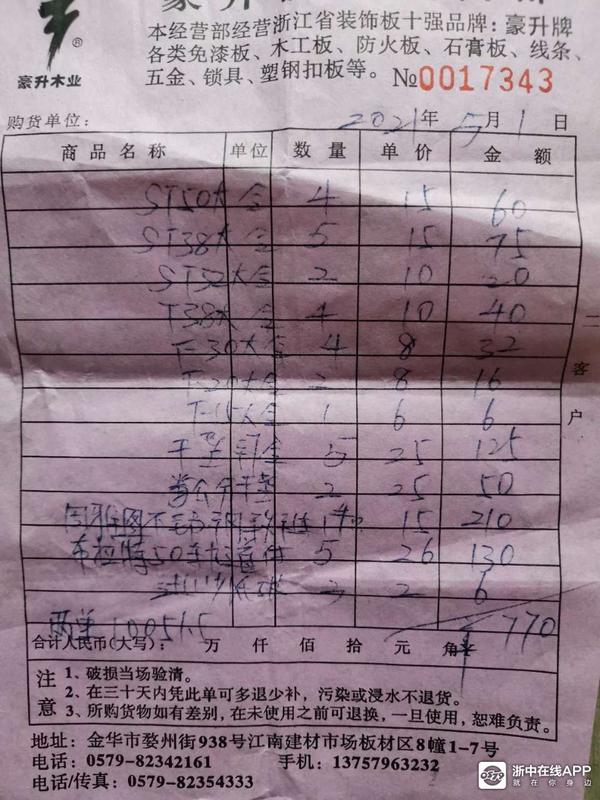 豪升木业
®
本经营部经营浙江省装饰板十强品牌：豪升牌
各类免漆板、木工板、防火板、石膏板、线条、
五金、锁具、塑钢扣板等。 №0017343
购货单位： 2021年5月1日
商品名称 单位 数量 单价 金额
ST50大 盒 4 15 60
ST38大 盒 5 15 75
ST32大 盒 2 10 20
T38大 盒 4 10 40
T-30大 盒 4 8 32
T-20大 盒 2 8 16
T-15大 盒 1 6 6
干 钉 盒 5 25 125
2 25 50
不 钢 15 210
布拉特50 5 26 130
3 2 6
两单 10051.5 770
合计人民币(大写)： 万 仟 佰 拾 元 角
二
客
户
注
意
1、破损当场验清。
2、在三十天内凭此单可多退少补，污染或浸水不退货。
3、所购货物如有差别，在未使用之前可退换，一旦使用，恕难负责。
地址：金华市婺州街938号江南建材市场板材区8幢1-7号
电话：0579-82342161 手机：13757963232
电话/传真：0579-82354333
浙中在线APP
就在你身边